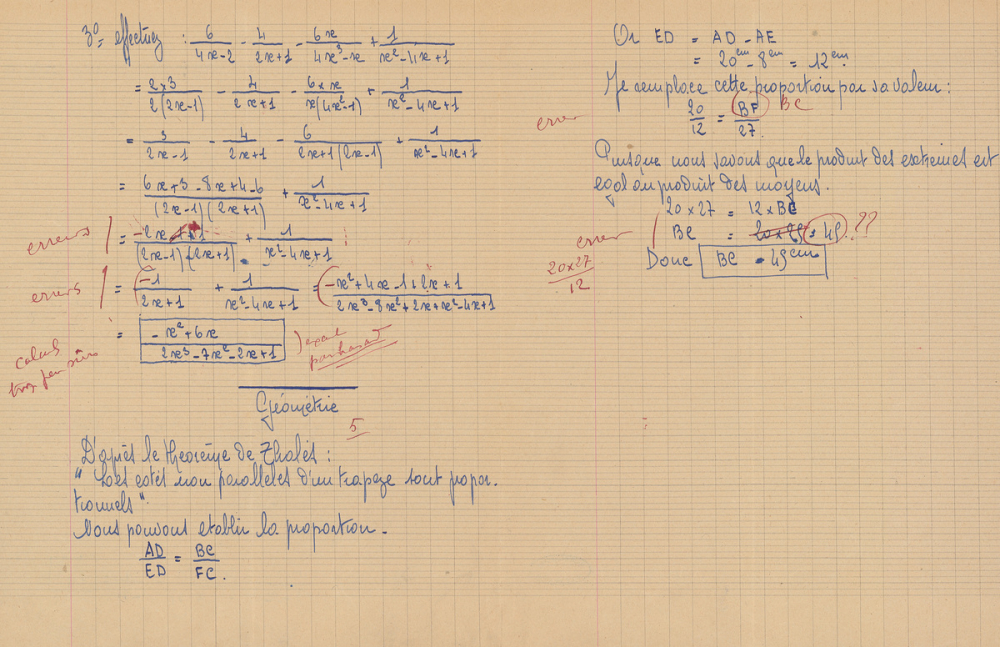 3º- effectuez : 6/(4x-2) - 4/(2x+1) - 6x/(4x³-x) + 1/(x²-4x+1)
= 2×3/2(2x-1) - 4/(2x+1) - 6×x/x(4x²-1) + 1/(x²-4x+1)
= 3/(2x-1) - 4/(2x+1) - 6/(2x+1)(2x-1) + 1/(x²-4x+1)
= (6x+3-8x+4-6)/(2x-1)(2x+1) + 1/(x²-4x+1)
erreurs = (-2x+1)/(2x-1)(2x+1) + 1/(x²-4x+1)
erreurs = -1/(2x+1) + 1/(x²-4x+1) = (-x²+4x-1+2x+1)/(2x³-8x²+2x+x²-4x+1)
= (-x²+6x)/(2x³-7x²-2x+1) exact
par hasard
calculs
trop peu sûrs
Géométrie
5
D'après le théorème de Thalès :
" Les cotés non parallèles d'un trapeze sont propor.
tionnels".
Nous pouvons etablir la proportion.
AD/ED = BC/FC.
Or ED = AD - AE
= 20cm - 8cm = 12cm
Je remplace cette proportion par sa valeur :
erreur 20/12 = BF/27. BC
Puisque nous savons que le produit des extrêmes est
egal au produit des moyens.
20×27 = 12×BC
erreur BC = 45. ??
20×27/12
Donc BC = 45cm